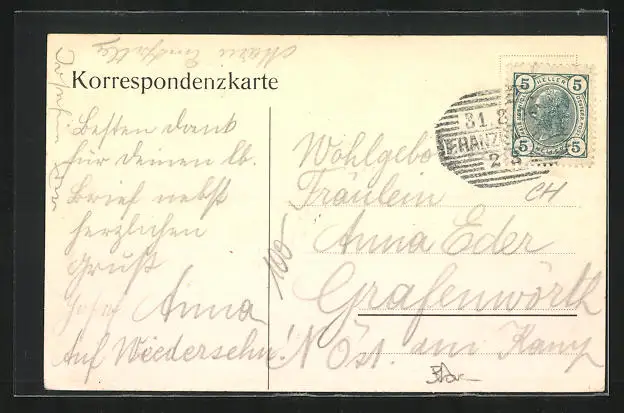 Korrespondenzkarte
Besten Dank
für deinen lb.
Brief nebst
herzlichen
Gruß
Anna
Auf Wiedersehn!
Wohlgebo
Fräulein
Anna Eder
Grafenwörth
N Öst. am Kamp
100
CH
5 HELLER 5
5 5
31.8
FRANZ
2